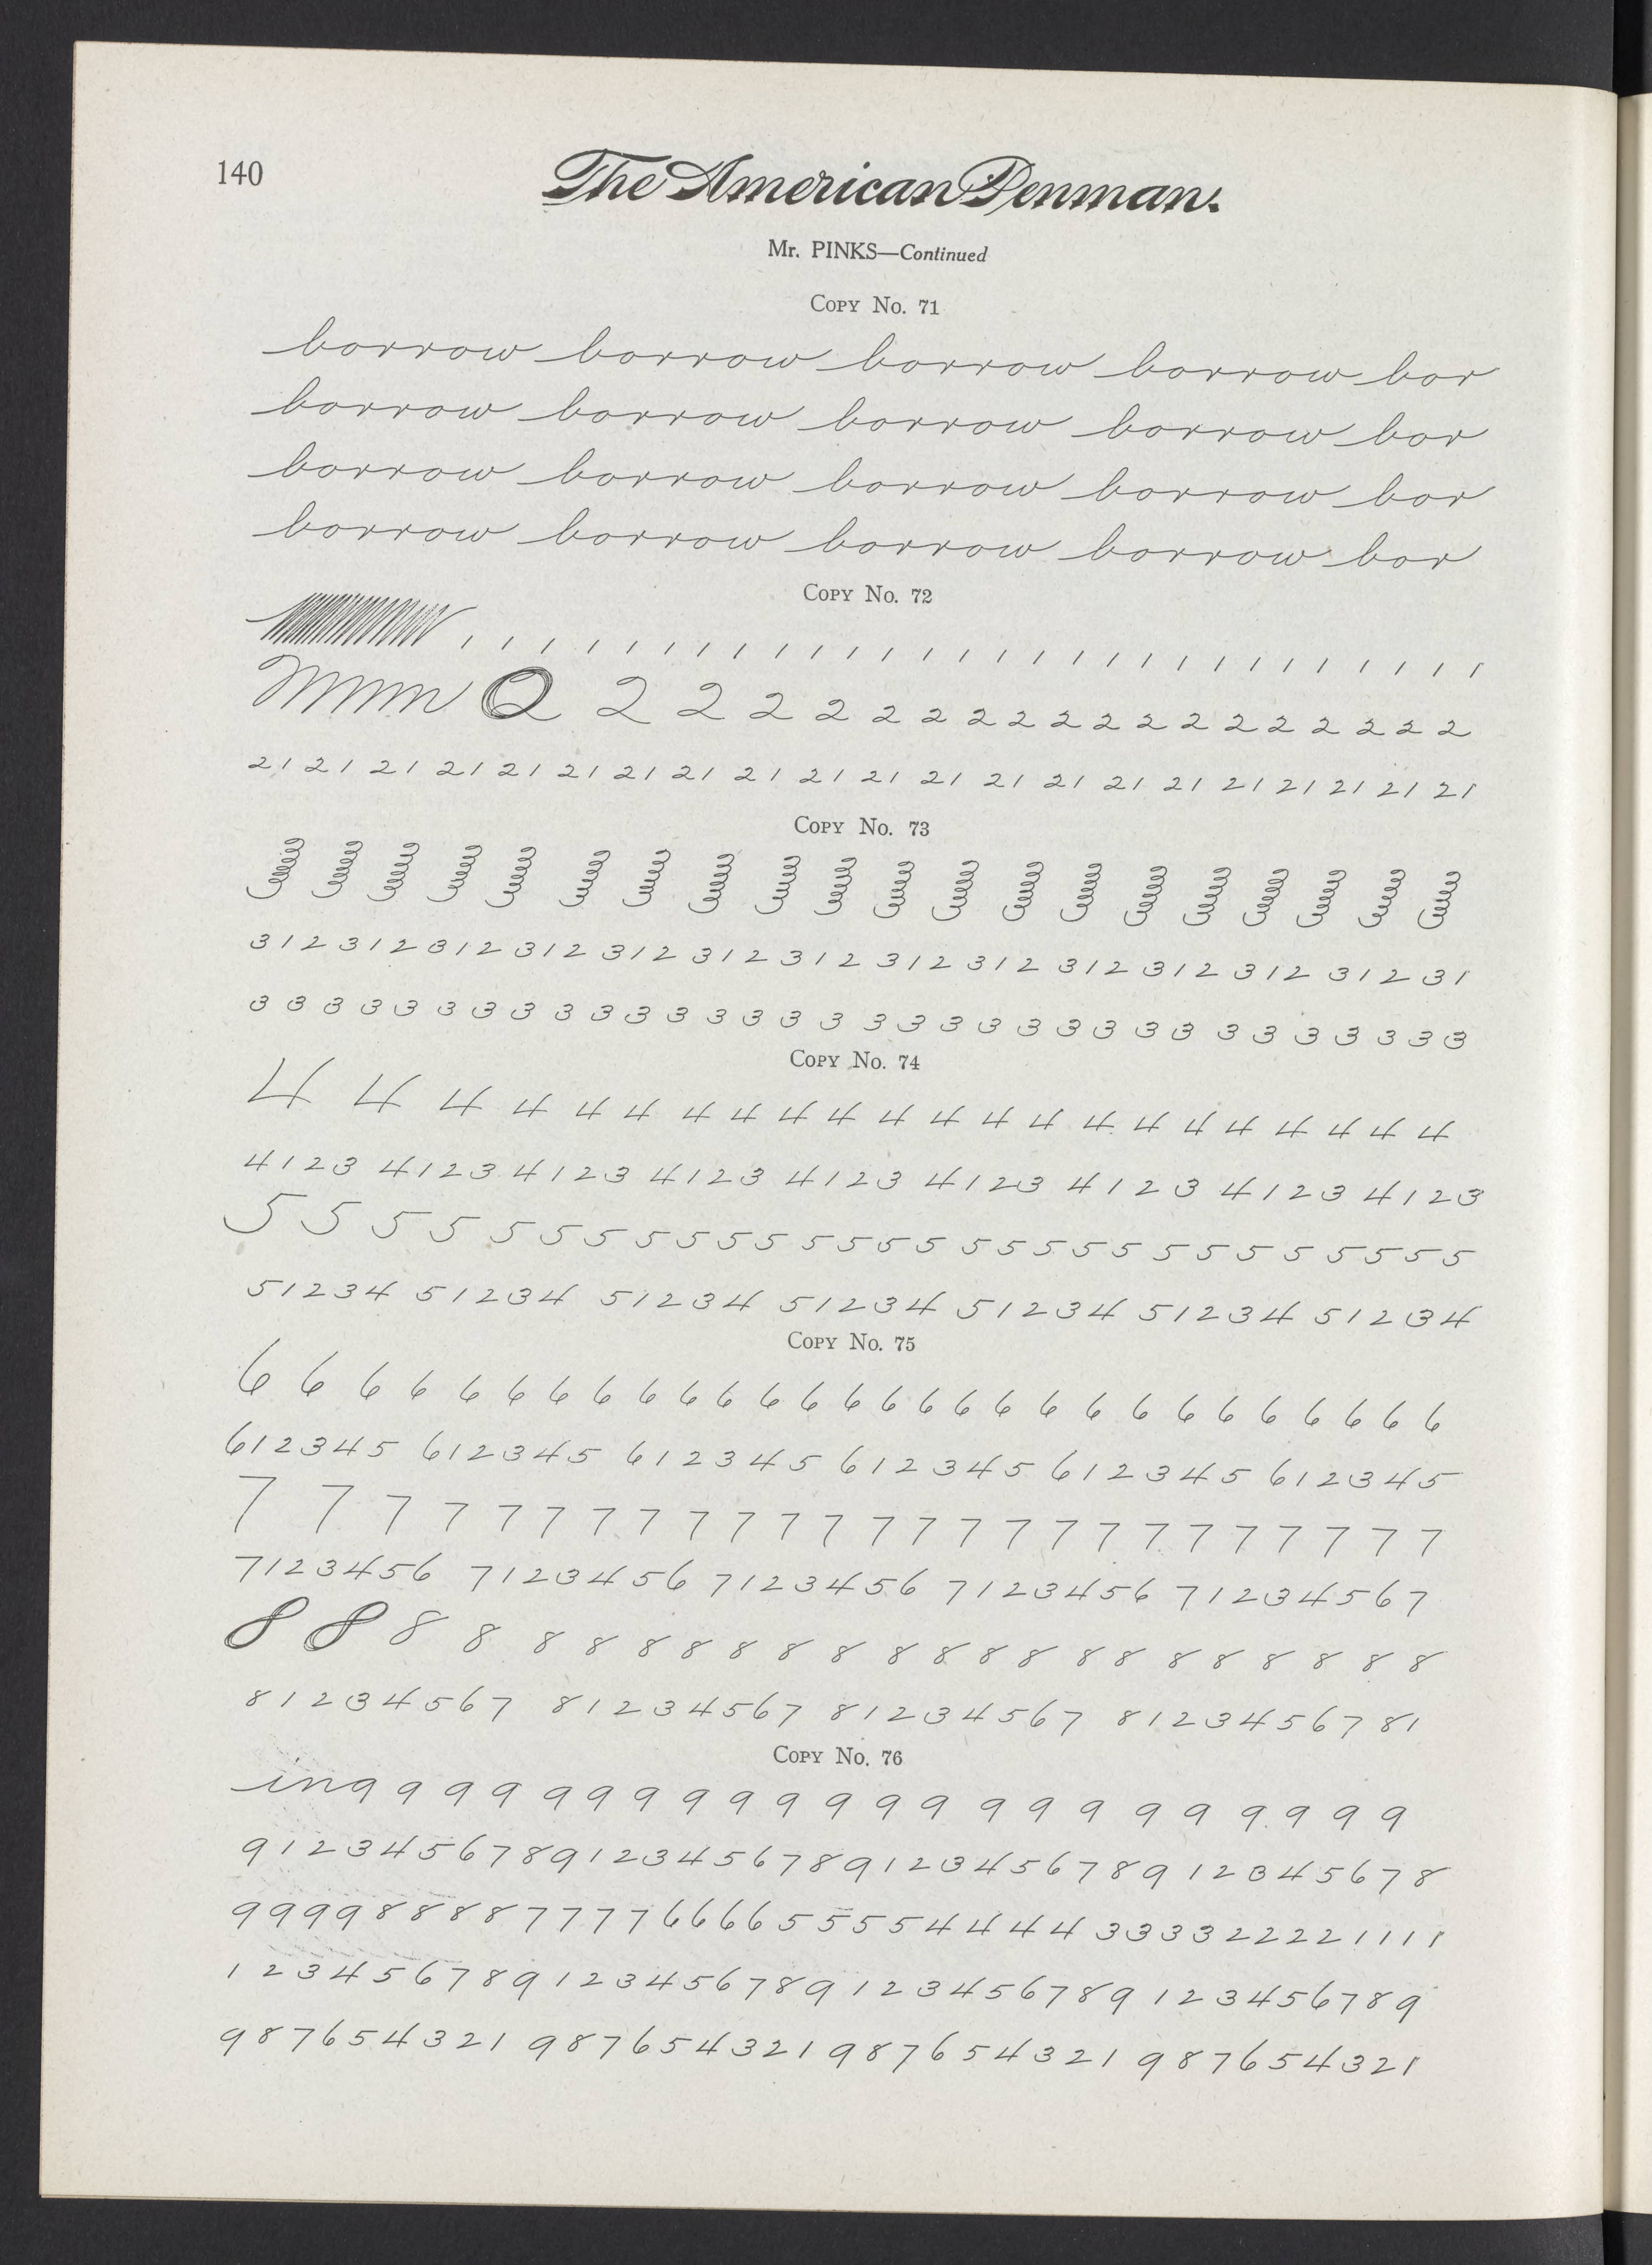 140
The American Penman.
Mr. PINKS—Continued
COPY No. 71
borrow borrow borrow borrow bor
borrow borrow borrow borrow bor
borrow borrow borrow borrow bor
borrow borrow borrow borrow bor
COPY No. 72
1 1 1 1 1 1 1 1 1 1 1 1 1 1 1 1 1 1 1 1 1 1 1 1 1 1 1 1
2 2 2 2 2 2 2 2 2 2 2 2 2 2 2 2 2 2 2
21 21 21 21 21 21 21 21 21 21 21 21 21 21 21 21 21 21 21 21 21
COPY No. 73
312 312 312 312 312 312 312 312 312 312 312 312 312 31
3 3 3 3 3 3 3 3 3 3 3 3 3 3 3 3 3 3 3 3 3 3 3 3 3 3 3 3 3 3 3 3
COPY No. 74
4 4 4 4 4 4 4 4 4 4 4 4 4 4 4 4 4 4 4 4 4 4
4123 4123 4123 4123 4123 4123 4123 4123 4123
5 5 5 5 5 5 5 5 5 5 5 5 5 5 5 5 5 5 5 5 5 5 5 5 5 5 5 5
51234 51234 51234 51234 51234 51234 51234
COPY No. 75
6 6 6 6 6 6 6 6 6 6 6 6 6 6 6 6 6 6 6 6 6 6 6 6 6 6 6 6
612345 612345 612345 612345 612345 612345
7 7 7 7 7 7 7 7 7 7 7 7 7 7 7 7 7 7 7 7 7 7 7 7 7
7123456 7123456 7123456 7123456 71234567
8 8 8 8 8 8 8 8 8 8 8 8 8 8 8 8 8 8 8 8 8 8 8
81234567 81234567 81234567 81234567 81
COPY No. 76
in9 9 9 9 9 9 9 9 9 9 9 9 9 9 9 9 9 9 9 9 9 9
912345678912345678912345678912345678
999988887777666655554444333322221111
123456789123456789123456789123456789
987654321 987654321 987654321 987654321